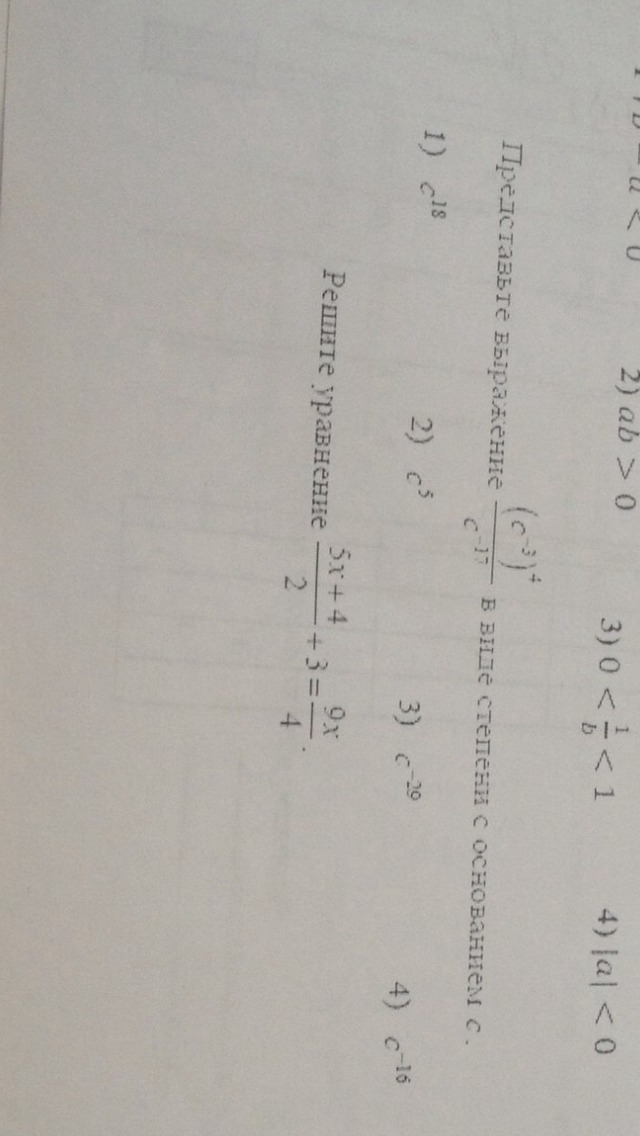 2) ab > 0 3) 0 < 1/b < 1 4) |a| < 0
Представьте выражение (c⁻³)⁴/c⁻¹⁷ в виде степени с основанием c.
1) c¹⁸ 2) c⁵ 3) c⁻²⁹ 4) c⁻¹⁶
Решите уравнение (5x + 4)/2 + 3 = 9x/4.